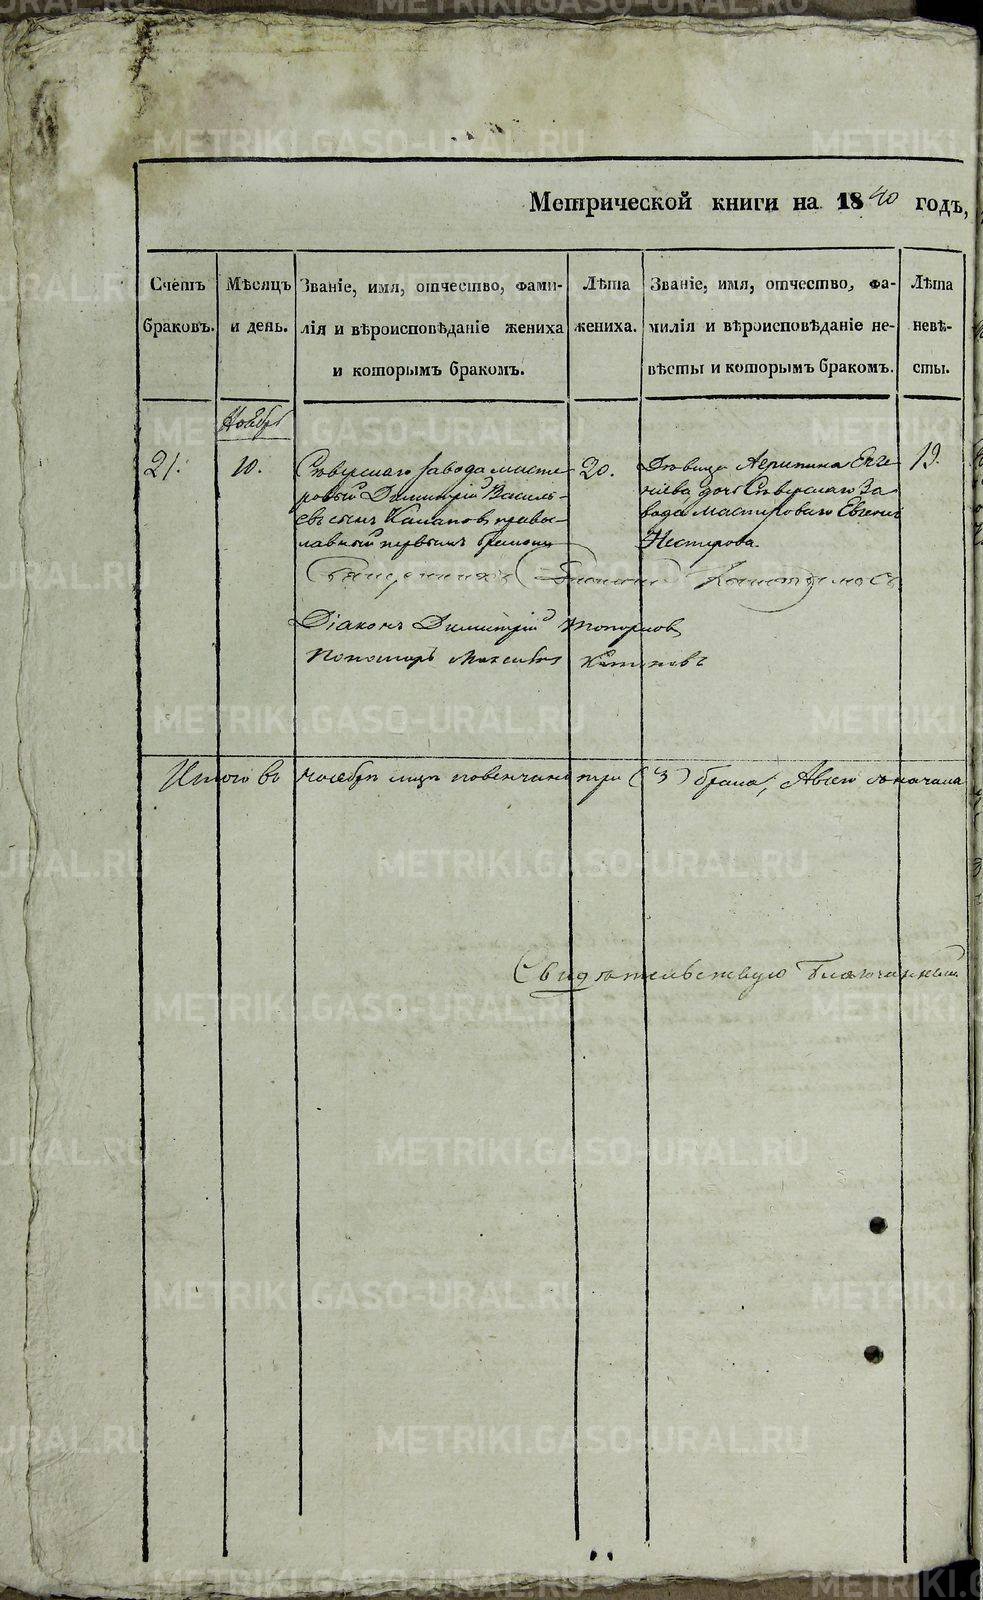 Метрической книги на 1840 годъ,
Счетъ браковъ.
Мѣсяцъ и день.
Званіе, имя, отчество, фами-
лія и вѣроисповѣданіе жениха
и которымъ бракомъ.
Лѣта
жениха.
Званіе, имя, отчество, фа-
милія и вѣроисповѣданіе не-
вѣсты и которымъ бракомъ.
Лѣта
невѣ-
сты.
Ноябрь
21.
10.
Сѣверскаго завода масте-
ровый Димитрій Василь-
евъ сынъ право-
славный первымъ бракомъ
20.
Дѣвица Агрипина Евге-
ніева дочь Сѣверскаго За-
вода мастероваго Евгенія
Нестерова
19.
Священникъ
Діаконъ Димитрій Топорковъ
Пономарь
Итого въ ноябрѣ повенчано три (3) брака, Авсего съначала
Свидѣтельствую Благочинный
METRIKI.GASO-URAL.RU